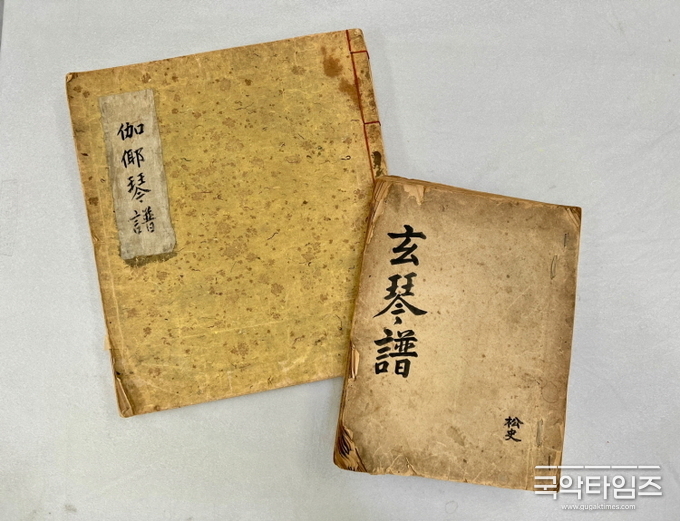 伽倻琴譜
玄琴譜
松史
국악타임즈
www.gugaktimes.com